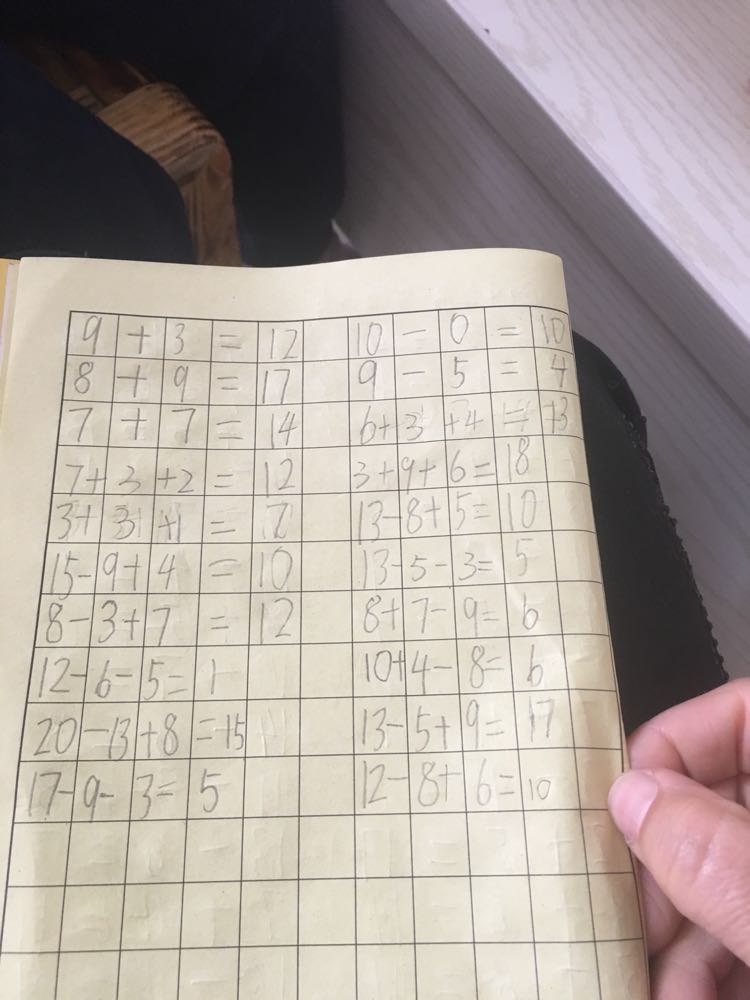 9 + 3 = 12 10 - 0 = 10
8 + 9 = 17 9 - 5 = 4
7 + 7 = 14 6+3+4=13
7+3+2=12 3+9+6=18
3+3+1=7 13-8+5=10
15-9+4=10 13-5-3=5
8-3+7=12 8+7-9=6
12-6-5=1 10+4-8=6
20-13+8=15 13-5+9=17
17-9-3=5 12-8+6=10